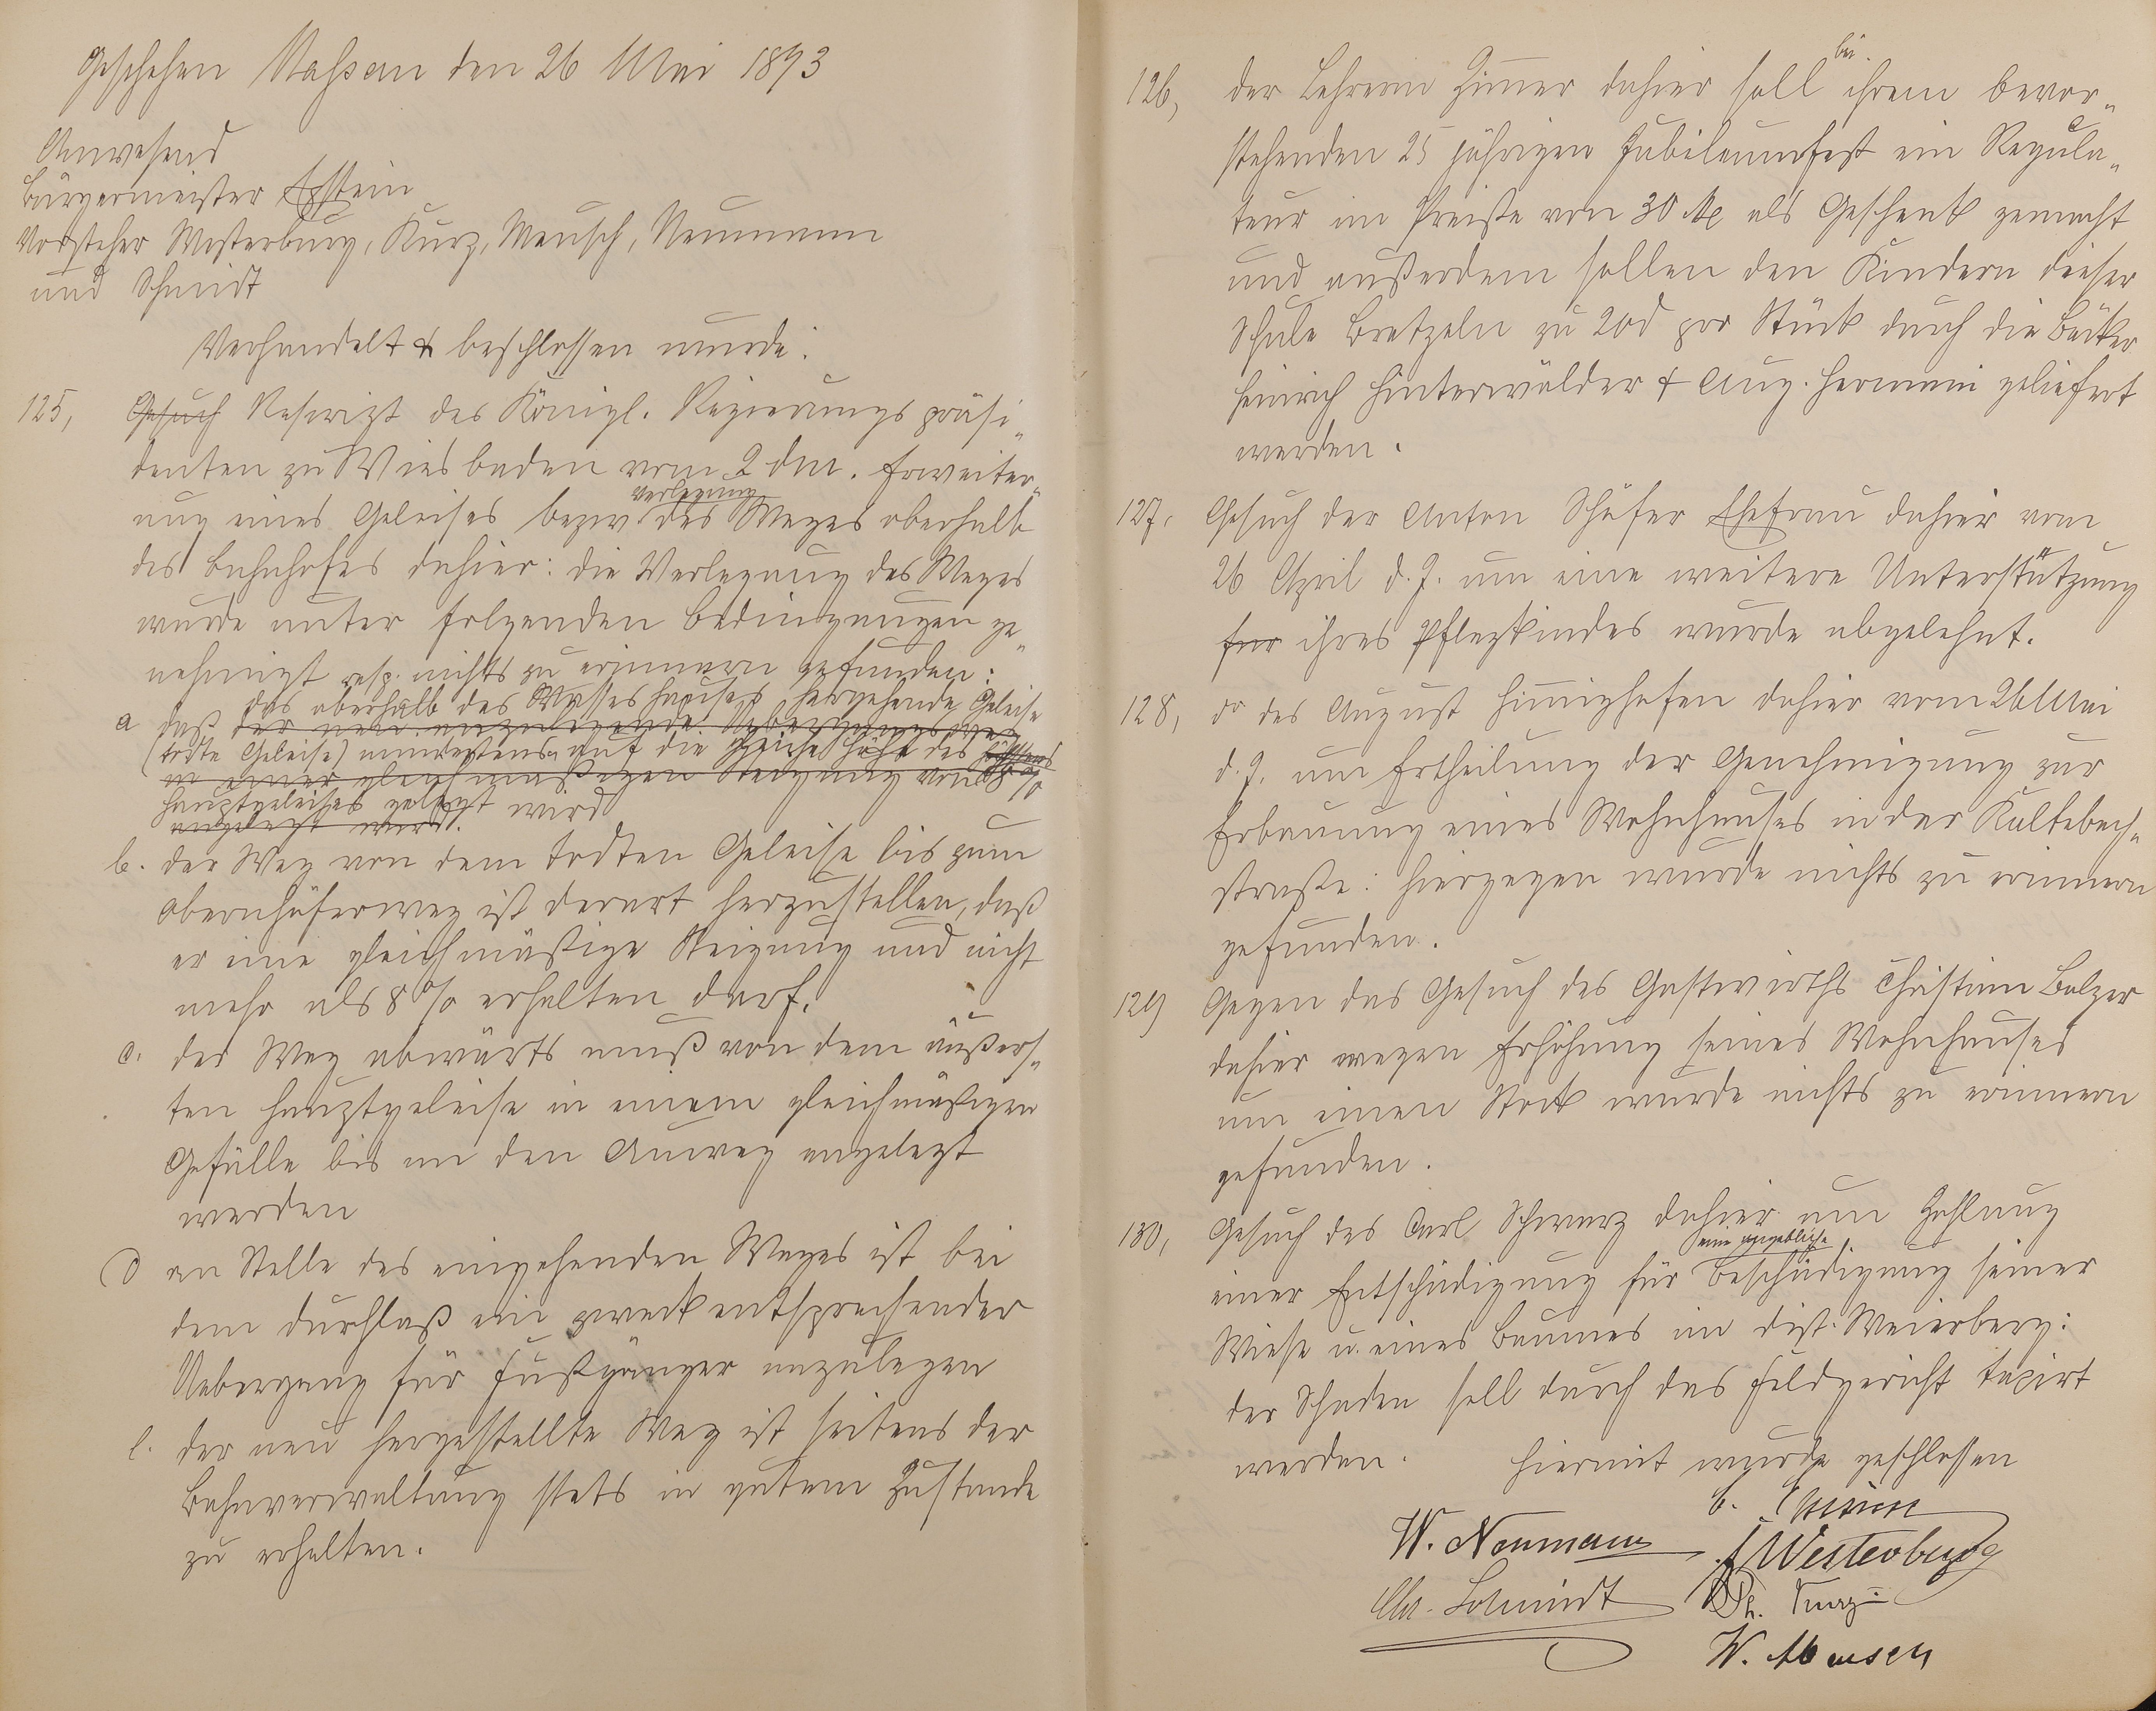 Geschehen Nassau den 26 Mai 1893
Anwesend
Bürgermeister Epstein
Vorsteher Westerburg, Kurz, Mensch, Neumann
und Schmidt
Verhandelt & beschlossen wurde:
125, Gesuch Reskript des Königl. Regierungspräsi-
denten zu Wiesbaden vom 2 dM. Erweiter-
ung eines Geleises bezw Verlegung des Weges oberhalb
des Bahnhofes dahier: die Verlegung des Weges
wurde unter folgenden Bedingungen ge-
nehmigt resp. nichts zu erinnern gefunden:
das oberhalb des Wasserhauses hergehende Geleise
a daß der neu anzulegende
(todte Geleise) mindestens auf die gleiche Höhe des
in einer gleichmäßigen Steigung von 8 %
Hauptgeleises gelegt wird
angelegt wird.
b. der Weg von dem todten Geleise bis zum
Obernhöferweg ist derart herzustellen, daß
er eine gleichmäßige Steigung und nicht
mehr als 8 % erhalten darf.
c. der Weg abwärts muß von dem äußers-
ten Hauptgeleise in einem gleichmäßigen
Gefälle bis an den Auweg angelegt
werden
d an Stelle des eingehenden Weges ist bei
dem Durchlaß ein zweckentsprechender
Uebergang für Fußgänger anzulegen
e. der neu hergestellte Weg ist seitens der
Bahnverwaltung stets in gutem Zustande
zu erhalten.
126, der Lehrerin Zimmer dahier soll bei ihrem bevor-
stehenden 25 jährigen Jubiläumsfest ein Regula-
teur im Preiße von 30 M als Geschenk gemacht
und außerdem sollen den Kindern dieser
Schule Bretzeln zu 20 d pro Stück durch die Bäcker
Heinrich Hinterwälder & Aug. Hermani geliefert
werden.
127. Gesuch der Anton Schäfer Ehefrau dahier vom
26 April d. J. um eine weitere Unterstützung
für ihres Pflegkindes wurde abgelehnt.
128, do des August Himmighofen dahier vom 26 Mai
d. J. um Ertheilung der Genehmigung zur
Erbauung eines Wohnhauses in der Kaltebach-
straße: hiergegen wurde nichts zu erinnern
gefunden.
129 Gegen das Gesuch des Gastwirths Christian Balzer
dahier wegen Erhöhung seines Wohnhauses
um einen Stock wurde nichts zu erinnern
gefunden.
130, Gesuch des Carl Schwarz dahier um Zahlung
einer Entschädigung für eine angebliche Beschädigung seiner
Wiese u. eines Baumes im Dist. Weierberg:
der Schaden soll durch das Feldgericht taxirt
werden. Hiermit wurde geschlossen
W. Neumann
Westerburg
Chr. Schmidt
Ph. Kurz
W. Mensch